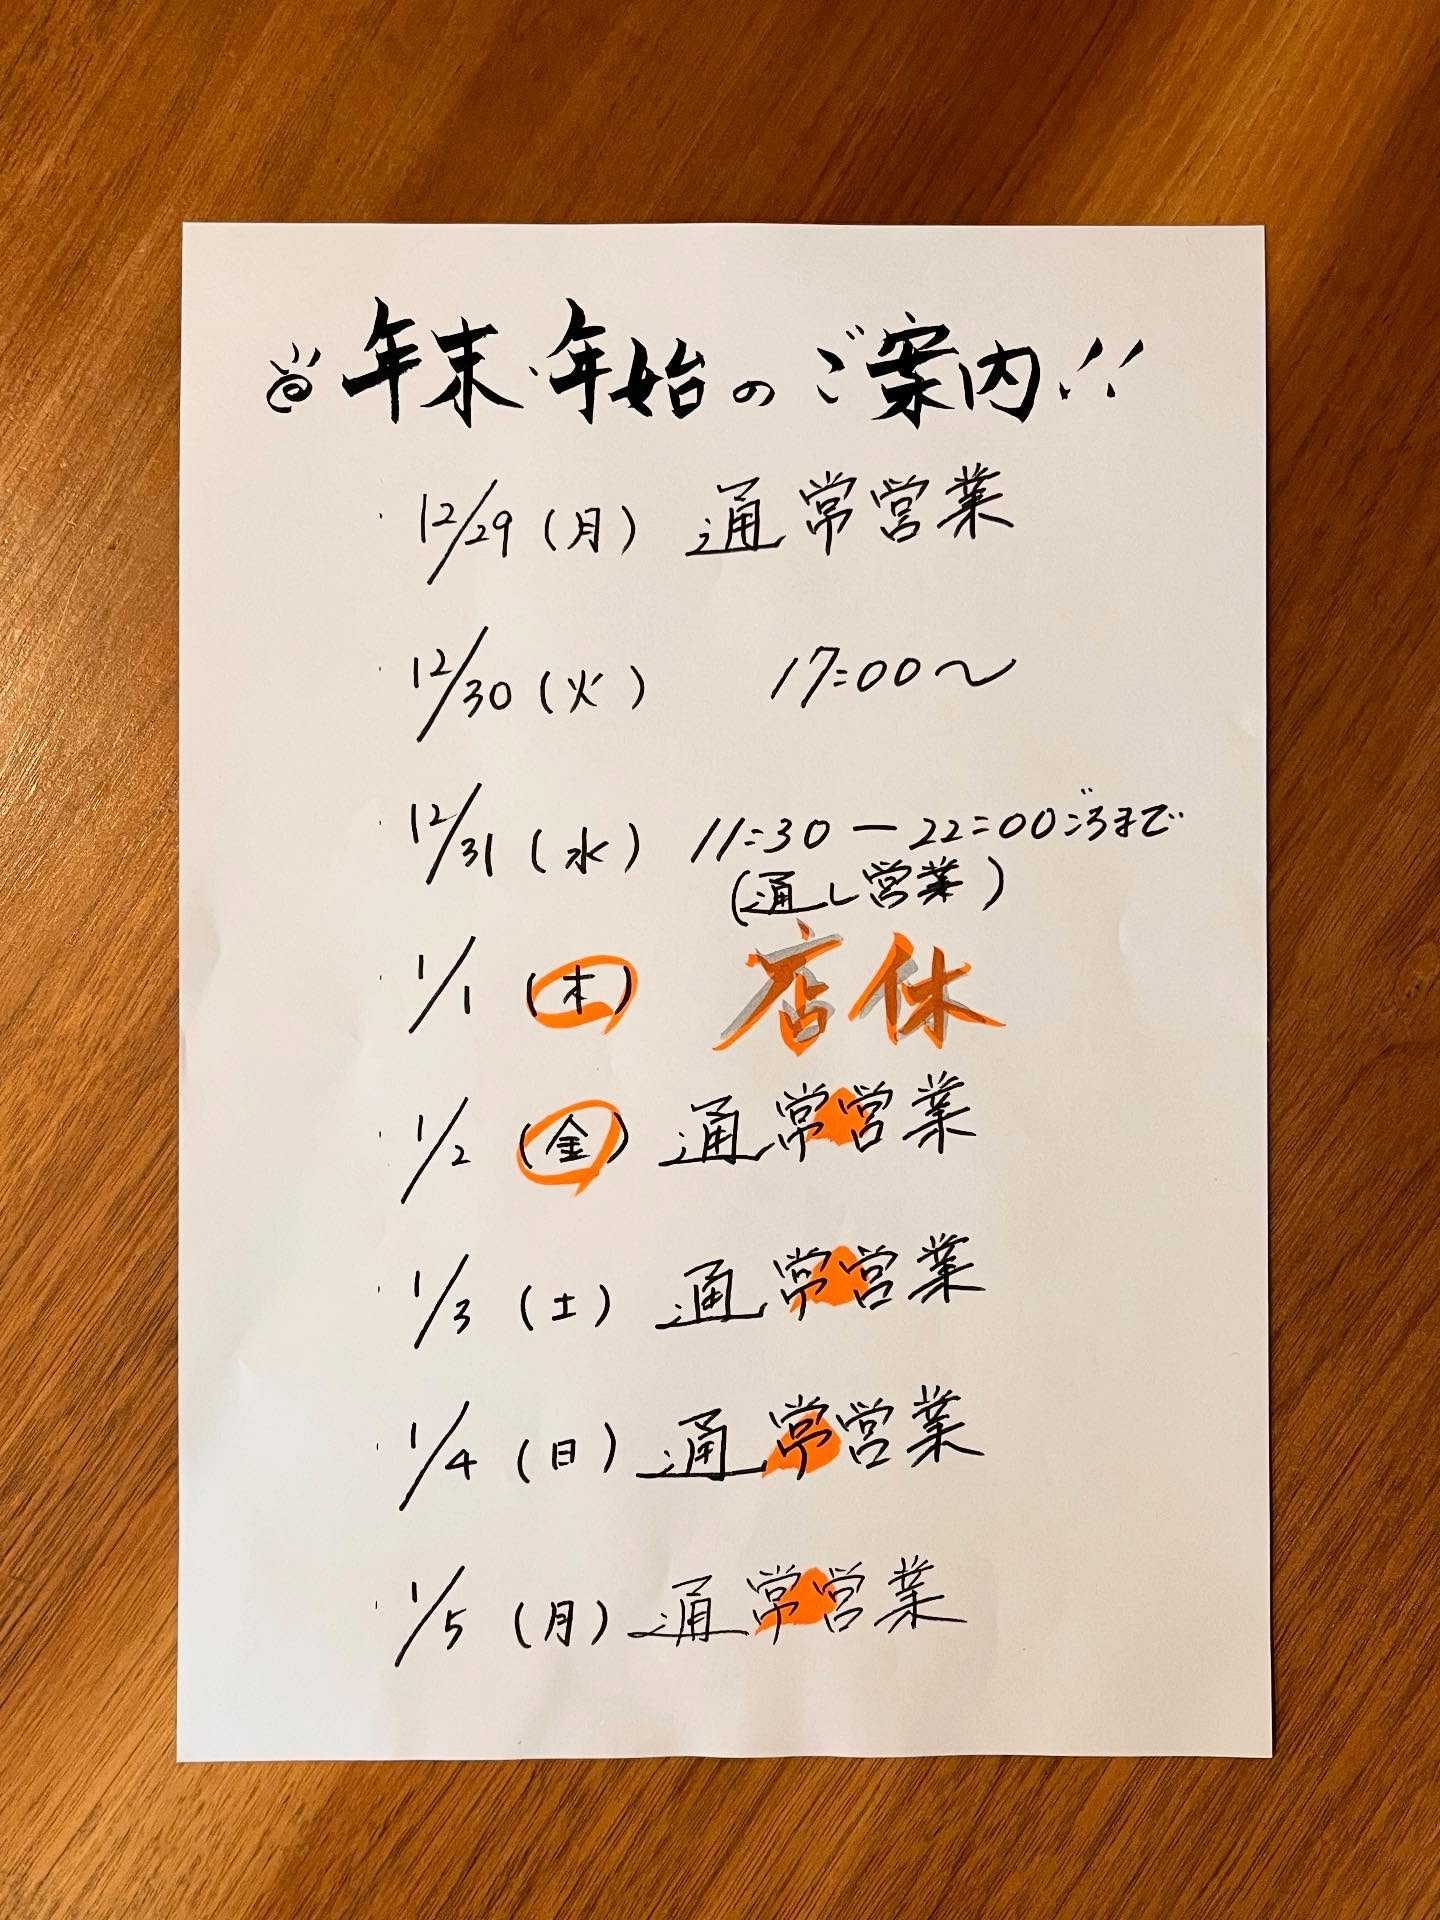 年末・年始のご案内!!
12/29(月) 通常営業
12/30(火) 17:00〜
12/31(水) 11:30ー22:00ごろまで
(通し営業)
1/1(木) 店休
1/2(金) 通常営業
1/3(土) 通常営業
1/4(日) 通常営業
1/5(月) 通常営業